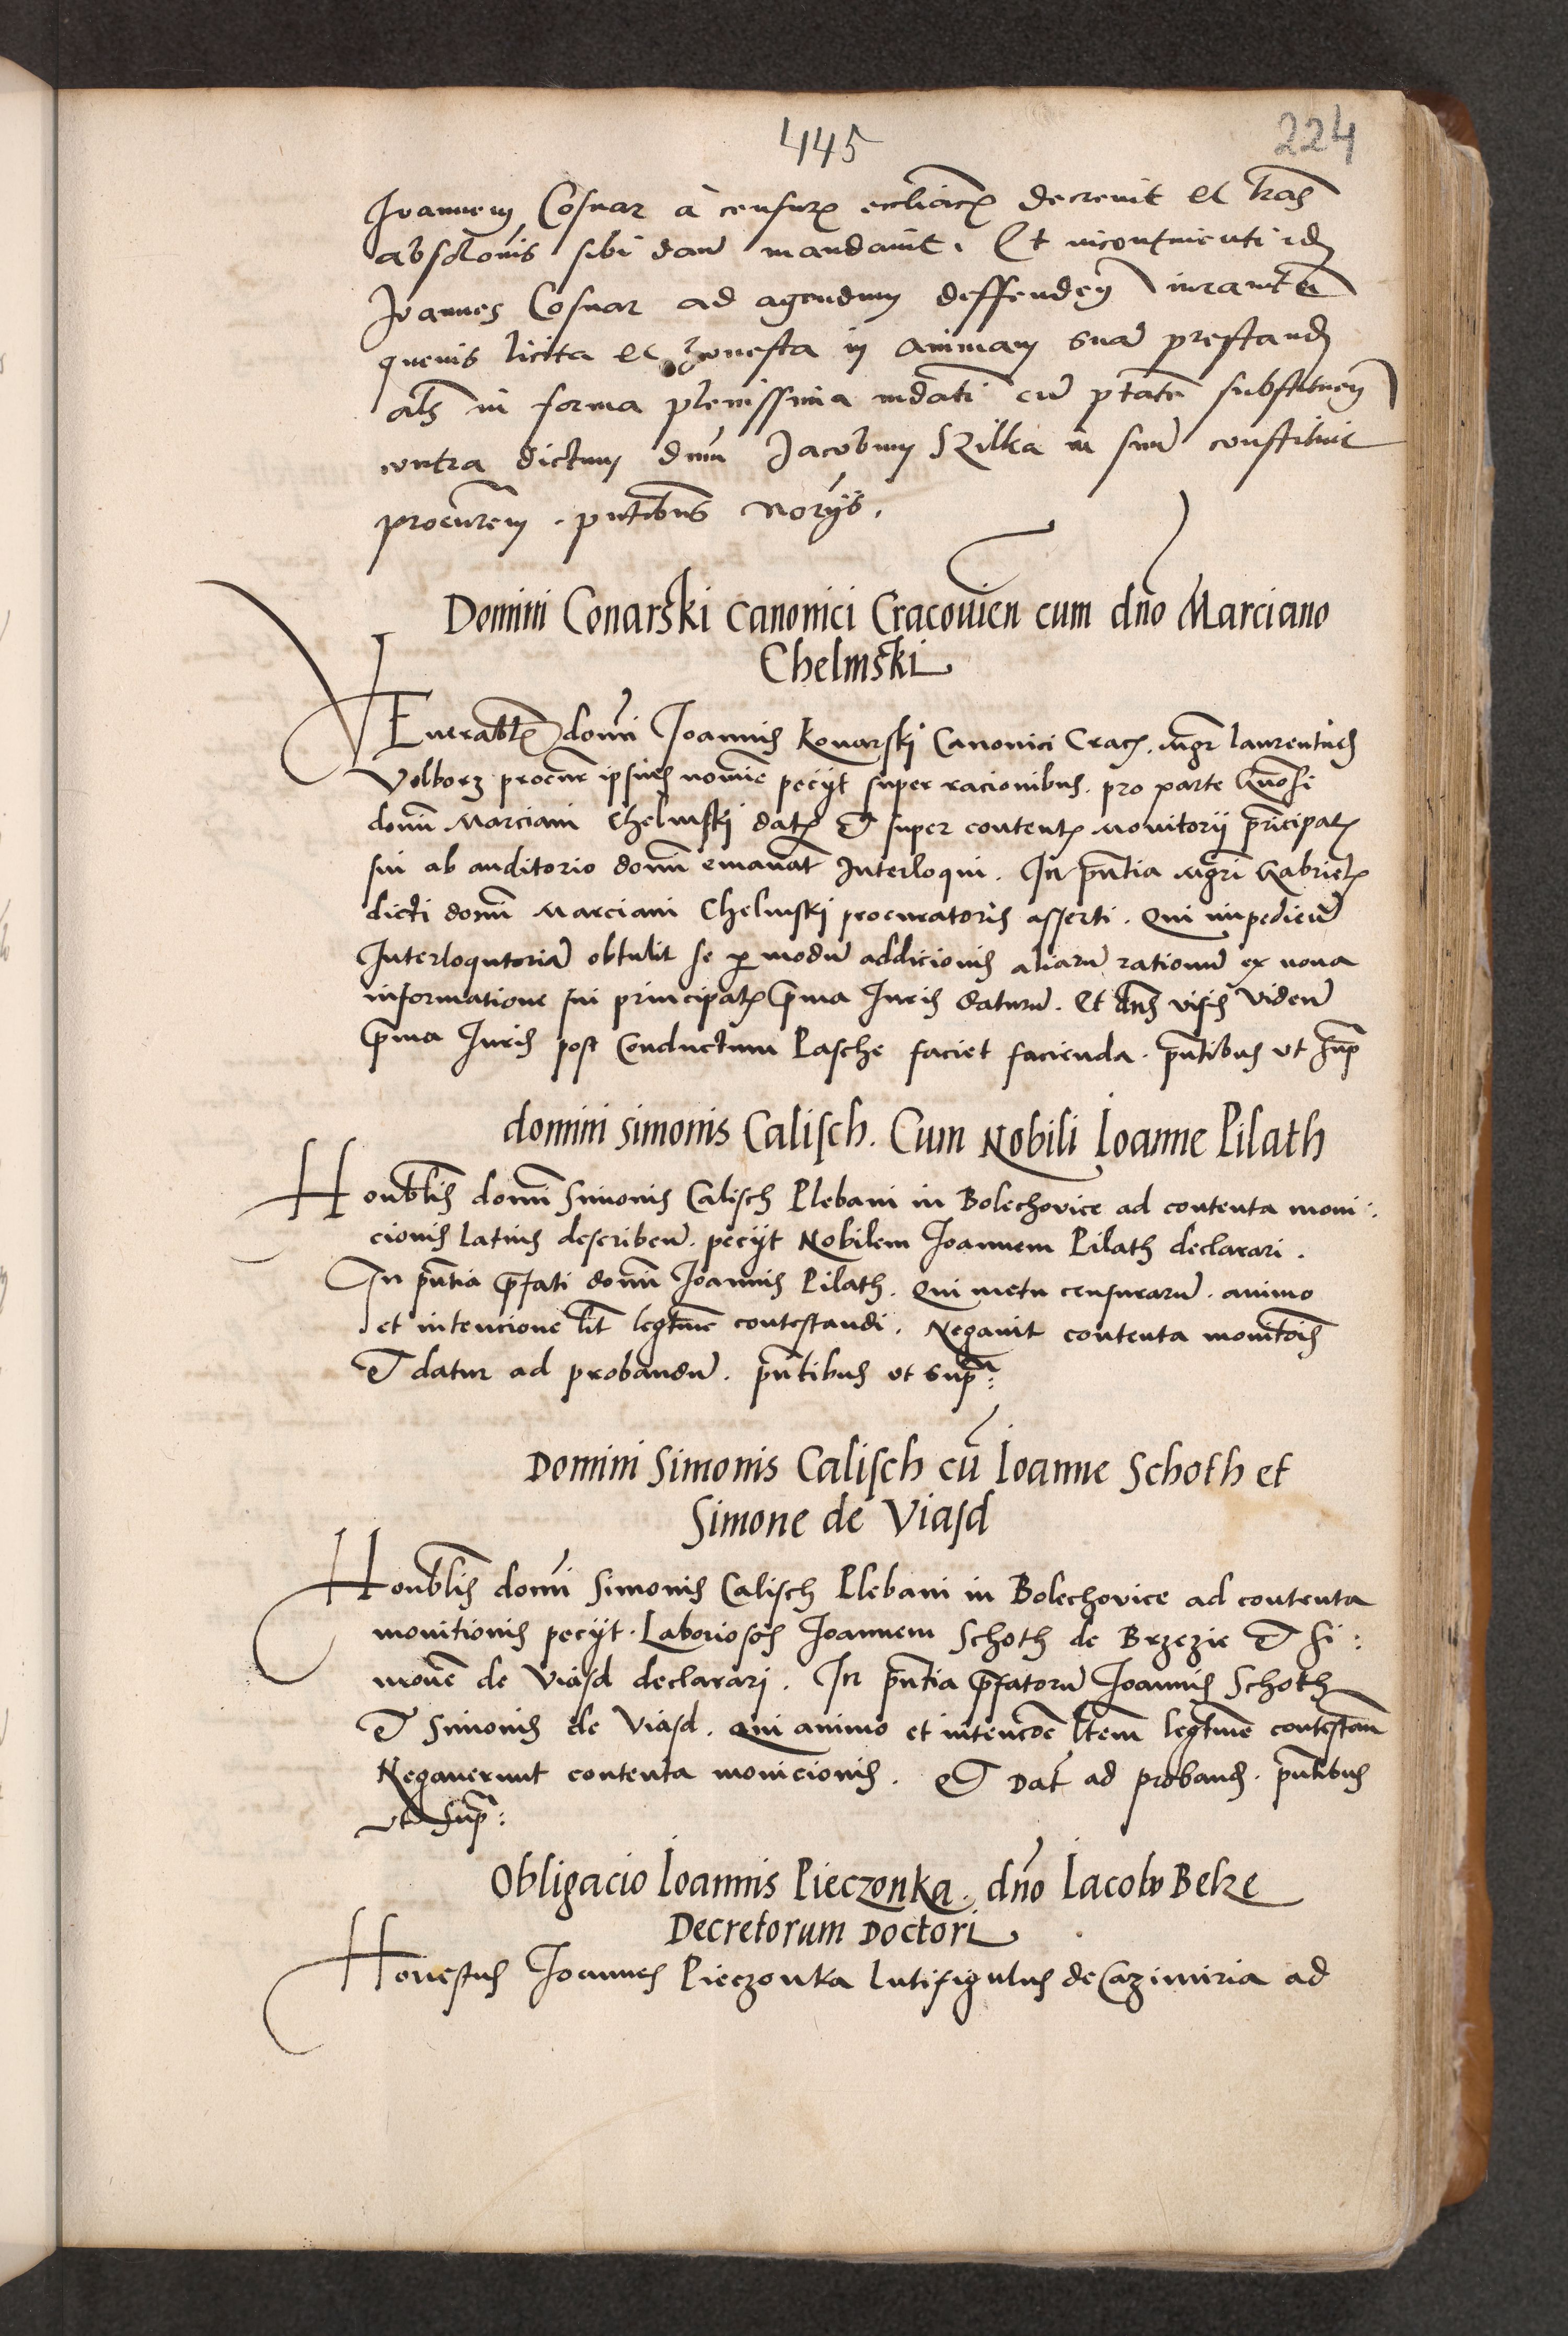 445
224
Joannem Cosnar a censur eccliac decrevit et lras
absolonis sibi dari mandavit. Et incontinenti id
Joannes Cosnar ad agendum deffenden iuramta
quevis licita et honesta in animam sua prestand
als in forma plenissima mdati cu ptate substituen
contra dictum dnm Jacobum Szilka in suu constituit
procurem. pntibus noriis.
Domini Conarski canonici Cracovien cum dno Marciano
Chelmski
VEnerablis domi Joannis Konarski Canonici Crac. Mgr laurentius
Volborz procur ipsius nomie peciit super racionibus. pro parte Gnosi
domi Marciani Chelmski dat et super content Monitorii principal
sui ab auditorio domi emanat Interloqui. In pntia Mgri Gabriel
dicti domi Marciani Chelmski procuratoris asserti. Qui impediend
Interloqutoria obtulit se p modu addicionis aliaru rationu ex nova
informatione sui principal pma Juris daturu. Et dns visis viden
pma Juris post Conductum Pasche faciet facienda. pntibus ut sup
domini simonis Calisch. Cum Nobili Ioanne Pilath
Honorblis domi Simonis Calisch Plebani in Bolechovice ad contenta moni:
cionis latius describen. peciit Nobilem Joannem Pilath declarari.
In pntia pfati domi Joannis Pilath. Qui metu censuraru. animo
et intencione lit legtime contestandi. Negavit contenta monitois
Et datur ad probandu. pntibus ut supra:
Domini Simonis Calisch cu Ioanne Schoth et
Simone de Viasd
Honorblis domi Simonis Calisch Plebani in Bolechovice ad contenta
monitionis peciit. Laboriosos Joannem Schoth de Brzezie Et Si:
mone de Viasd declarari. In pntia pfatoru Joannis Schoth
Et Simonis de Viasd. Qui animo et intencoe litem legtime contestan
Negaverunt contenta monicionis. Et Dat ad proband. pntibus
ut sup:
Obligacio Ioannis Pieczonka. dno Iacobo Beke
Decretorum Doctori
Honestus Joannes Pieczonka lutifigulus de Cazimiria ad